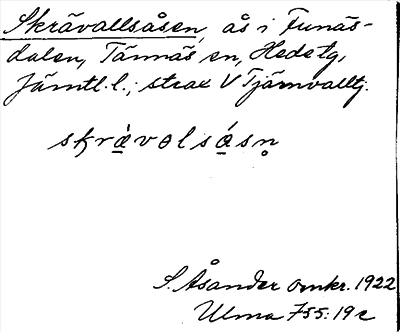 Skrävallsåsen, ås i Funäs-
dalen, Tännäs sn, Hede tg,
Jämtl. l.; strax V Tjärnvalltj.
skrævolsåsn̥
S. Åsander omkr. 1922
Ulma 755:19 c